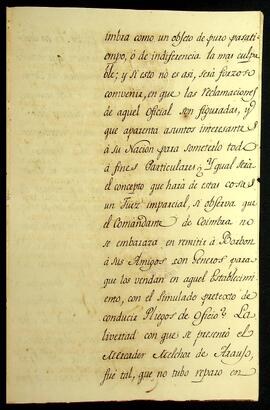 imbra como un objeto de puro pasati-
empo, ó de indiferencia la mas culpa-
ble; y si esto no es asi, será forzoso
convenir, en que las reclamaciones
de aquel oficial son figuradas, y q.e
que aparenta asuntos interesantes
á su Nacion para someterlo todo
á fines Particulares; ¿Y qual sería
el concepto que hará de estas cosas
un Juez imparcial, si observa que
el Comandante de Coimbra no
se embaraza en remitir á Borbon
á sus Amigos con Generos para
que los vendan en aquel Establecim-
iento, con el simulado pretexto de
conducir Pliegos de Oficio? La
livertad con que se presentó el
Mercader Melchor de Araujo,
fué tal, que no tubo reparo en